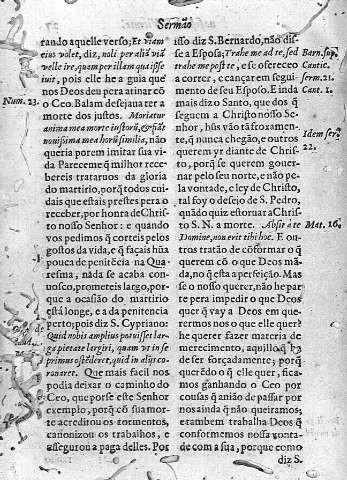 Sermão
tando aquelle verso; Et viam
eius volet, diz, noli per aliã viã
velle ire, quem per illam quatisse
iuit, pois elle he a guia que
nos Deos deu pera atinar cõ
o Ceo. Balam desejaua ter a
Num. 23.
morte dos justos. Moriatur
anima mea morte iustorũ, & fiãt
nouissima mea horũ similia, não
queria porem imitar sua vida
Pareceme q̃ milhor rece
bereis tratarvos da gloria
do martirio, porq̃ todos cui
dais que estais prestes pera o
receber, por honra de Chris
to nosso Senhor: e quando
vos pedimos q̃ corteis pelos
gostos da vida, e q̃ façais hũa
pouca de penitẽcia na Qua
resma, nada se acaba con
nosco, prometeis largo, por
que a ocasião do martirio
està longe, e a da penitencia
perto; pois diz S. Cypriano:
Quid nobis amplius potuisset lar
ga pietate largiri, quam vt in se
primus ostẽderet, quid in alijs co
ronaret. Que mais facil nos
podia deixar o caminho do
Ceo, que por se este Senhor
exemplo, porq̃ cõ sua mor
te acreditou os tormentos,
canonizou os trabalhos, e
assegurou a paga delles. Por
isso diz S. Bernardo, não dis
se a Esposa; Trahe me ad te, sed
Barn. sup.
trahe me post te, e se ofereceo
Cantic.
a correr, e cançarem segui-
serm. 21.
mento de seu Esposo. E inda
Cant. 1.
mais diz o Santo, que dos q̃
seguem a Christo nosso Se-
nhor, hũs vão tã froxamen-
Idem ser.
te, q̃ nunca chegão, e outros
22.
querem yr diante de Chris-
tò, porq̃ se querem gouer-
nar pelo seu norte, e não pe
la vontade, e ley de Christo,
tal foy o desejo de S. Pedro,
quãdo quiz estoruar a Chris
to S. N. a morte. Absit à te
Mat. 16.
Domine, non erit tibi hoc. E ou
tros tratão de cõformar o q̃
querem cõ o que Deos mã-
da, no q̃ esta a perfeição. Mas
se o nosso querer, não he par
te pera impedir o que Deos
quer q̃ vay a Deos em que-
rermos nos o que elle quer?
he querer fazer materia de
merecimento, aquillo, q̃ ha
de ser forçadamente; porq̃
querẽdo o q̃ elle quer, fica-
mos ganhando o Ceo por
cousas q̃ anião de passar por
nos ainda q̃ não queiramos;
e tambem trabalha Deos q̃
conformemos nossa vonta-
de com a sua, porque como
diz S.